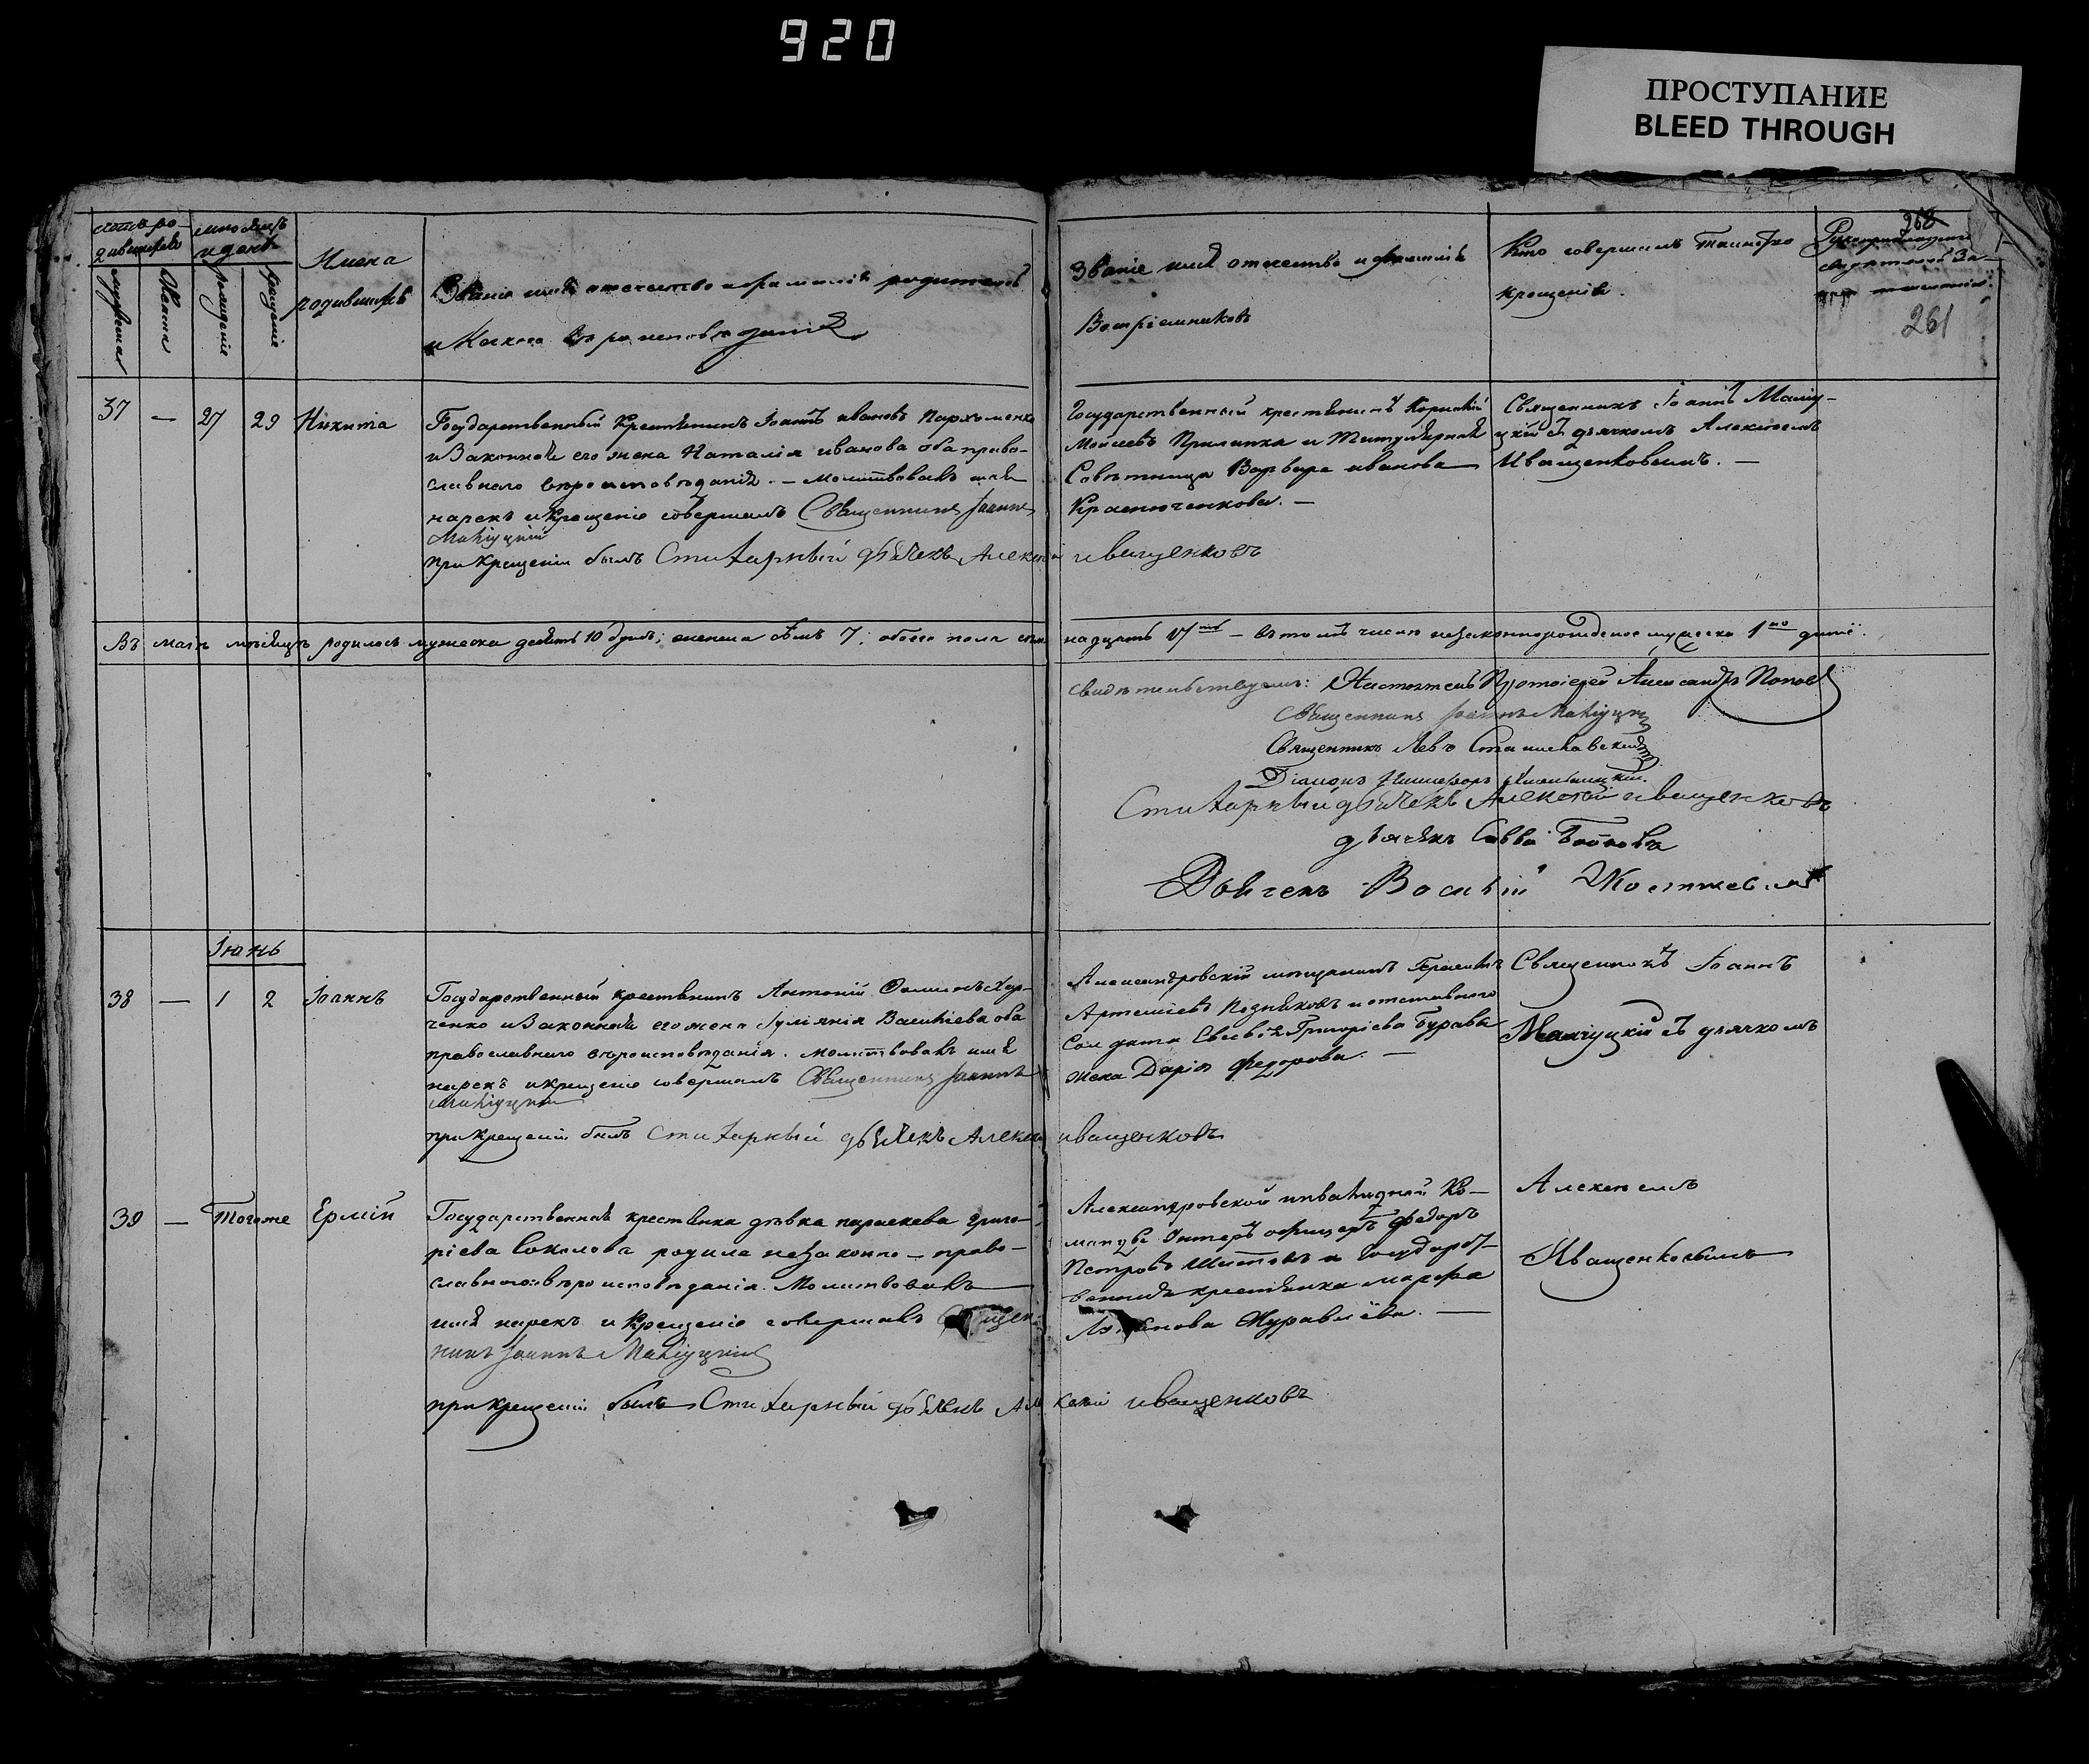 920
ПРОСТУПАНИЕ
BLEED THROUGH
368
261
Имена
родившихъ
Званіе имя отечество и фамилія родителей
и какого вѣроисповѣданія
Званіе имя отечество и фамилія
Воспріемниковъ
Кто совершалъ таинство
крещенія.
мужеска
женска
рожденіе
крещеніе
37 — 27 29 Никита
Государственный крестьянинъ Іоаннъ ивановъ Пархоменко
и Законная его жена Наталія иванова оба право-
славнаго вѣроисповѣданія. — Молитвовалъ имя
нарекъ и Крещеніе совершалъ Священникъ Іоаннъ
при Крещеніи былъ Стихарный дьячекъ Алексѣй иващенковъ
Государственный крестьянинъ Корнилій
Мойсеевъ Прилипка и Титулярная
Совѣтница Варвара иванова
Священникъ Іоаннъ
съ дьячкомъ Алексѣемъ
Иващенковымъ. —
Въ маѣ мѣсяцѣ родилось мужеска десять 10 душъ; женска семь 7; обоего пола семнадцать 17ть — въ томъ числѣ незаконнорожденое мужеска 1но дитё.
Свидѣтельствуемъ: Настоятель Протоіерей Александръ Поповъ
Священникъ Іоаннъ
Священникъ Левъ Станиславскій
Діаконъ Никифоръ
Стихарный дьячекъ Алексѣй иващенковъ
дьячекъ Савва Бойковъ
Дьячекъ Василій
Іюнь
38 — 1 2 Іоаннъ
Государственный крестьянинъ Антоній Хар-
ченко и Законная его жена Іуліянія Васильева оба
православнаго вѣроисповѣданія. Молитвовалъ имя
нарекъ и крещеніе совершалъ Священникъ Іоаннъ
при Крещеніи былъ Стихарный дьячекъ Алексѣй иващенковъ
Александровскій мещанинъ Герасимъ
Артеміевъ Поздняковъ и отставного
Солдата Григоріева
жена Дарія Федорова. —
Священникъ Іоаннъ
съ дьячкомъ
39 — Тогоже Ермій
Государственная крестьянка дѣвка параскева григо-
ріева Соколова родила незаконно — право-
славнаго вѣроисповѣданія. Молитвовалъ
имя нарекъ и Крещеніе совершалъ Священ-
никъ Іоаннъ
при крещеніи былъ Стихарный дьячекъ Алексѣй иващенковъ
Александровской инвалидной Ко-
манды Унтеръ офицеръ Федоръ
Петровъ Шитовъ и Государст-
венная крестьянка марфа
Журавлёва. —
Алексѣемъ
Иващенковымъ